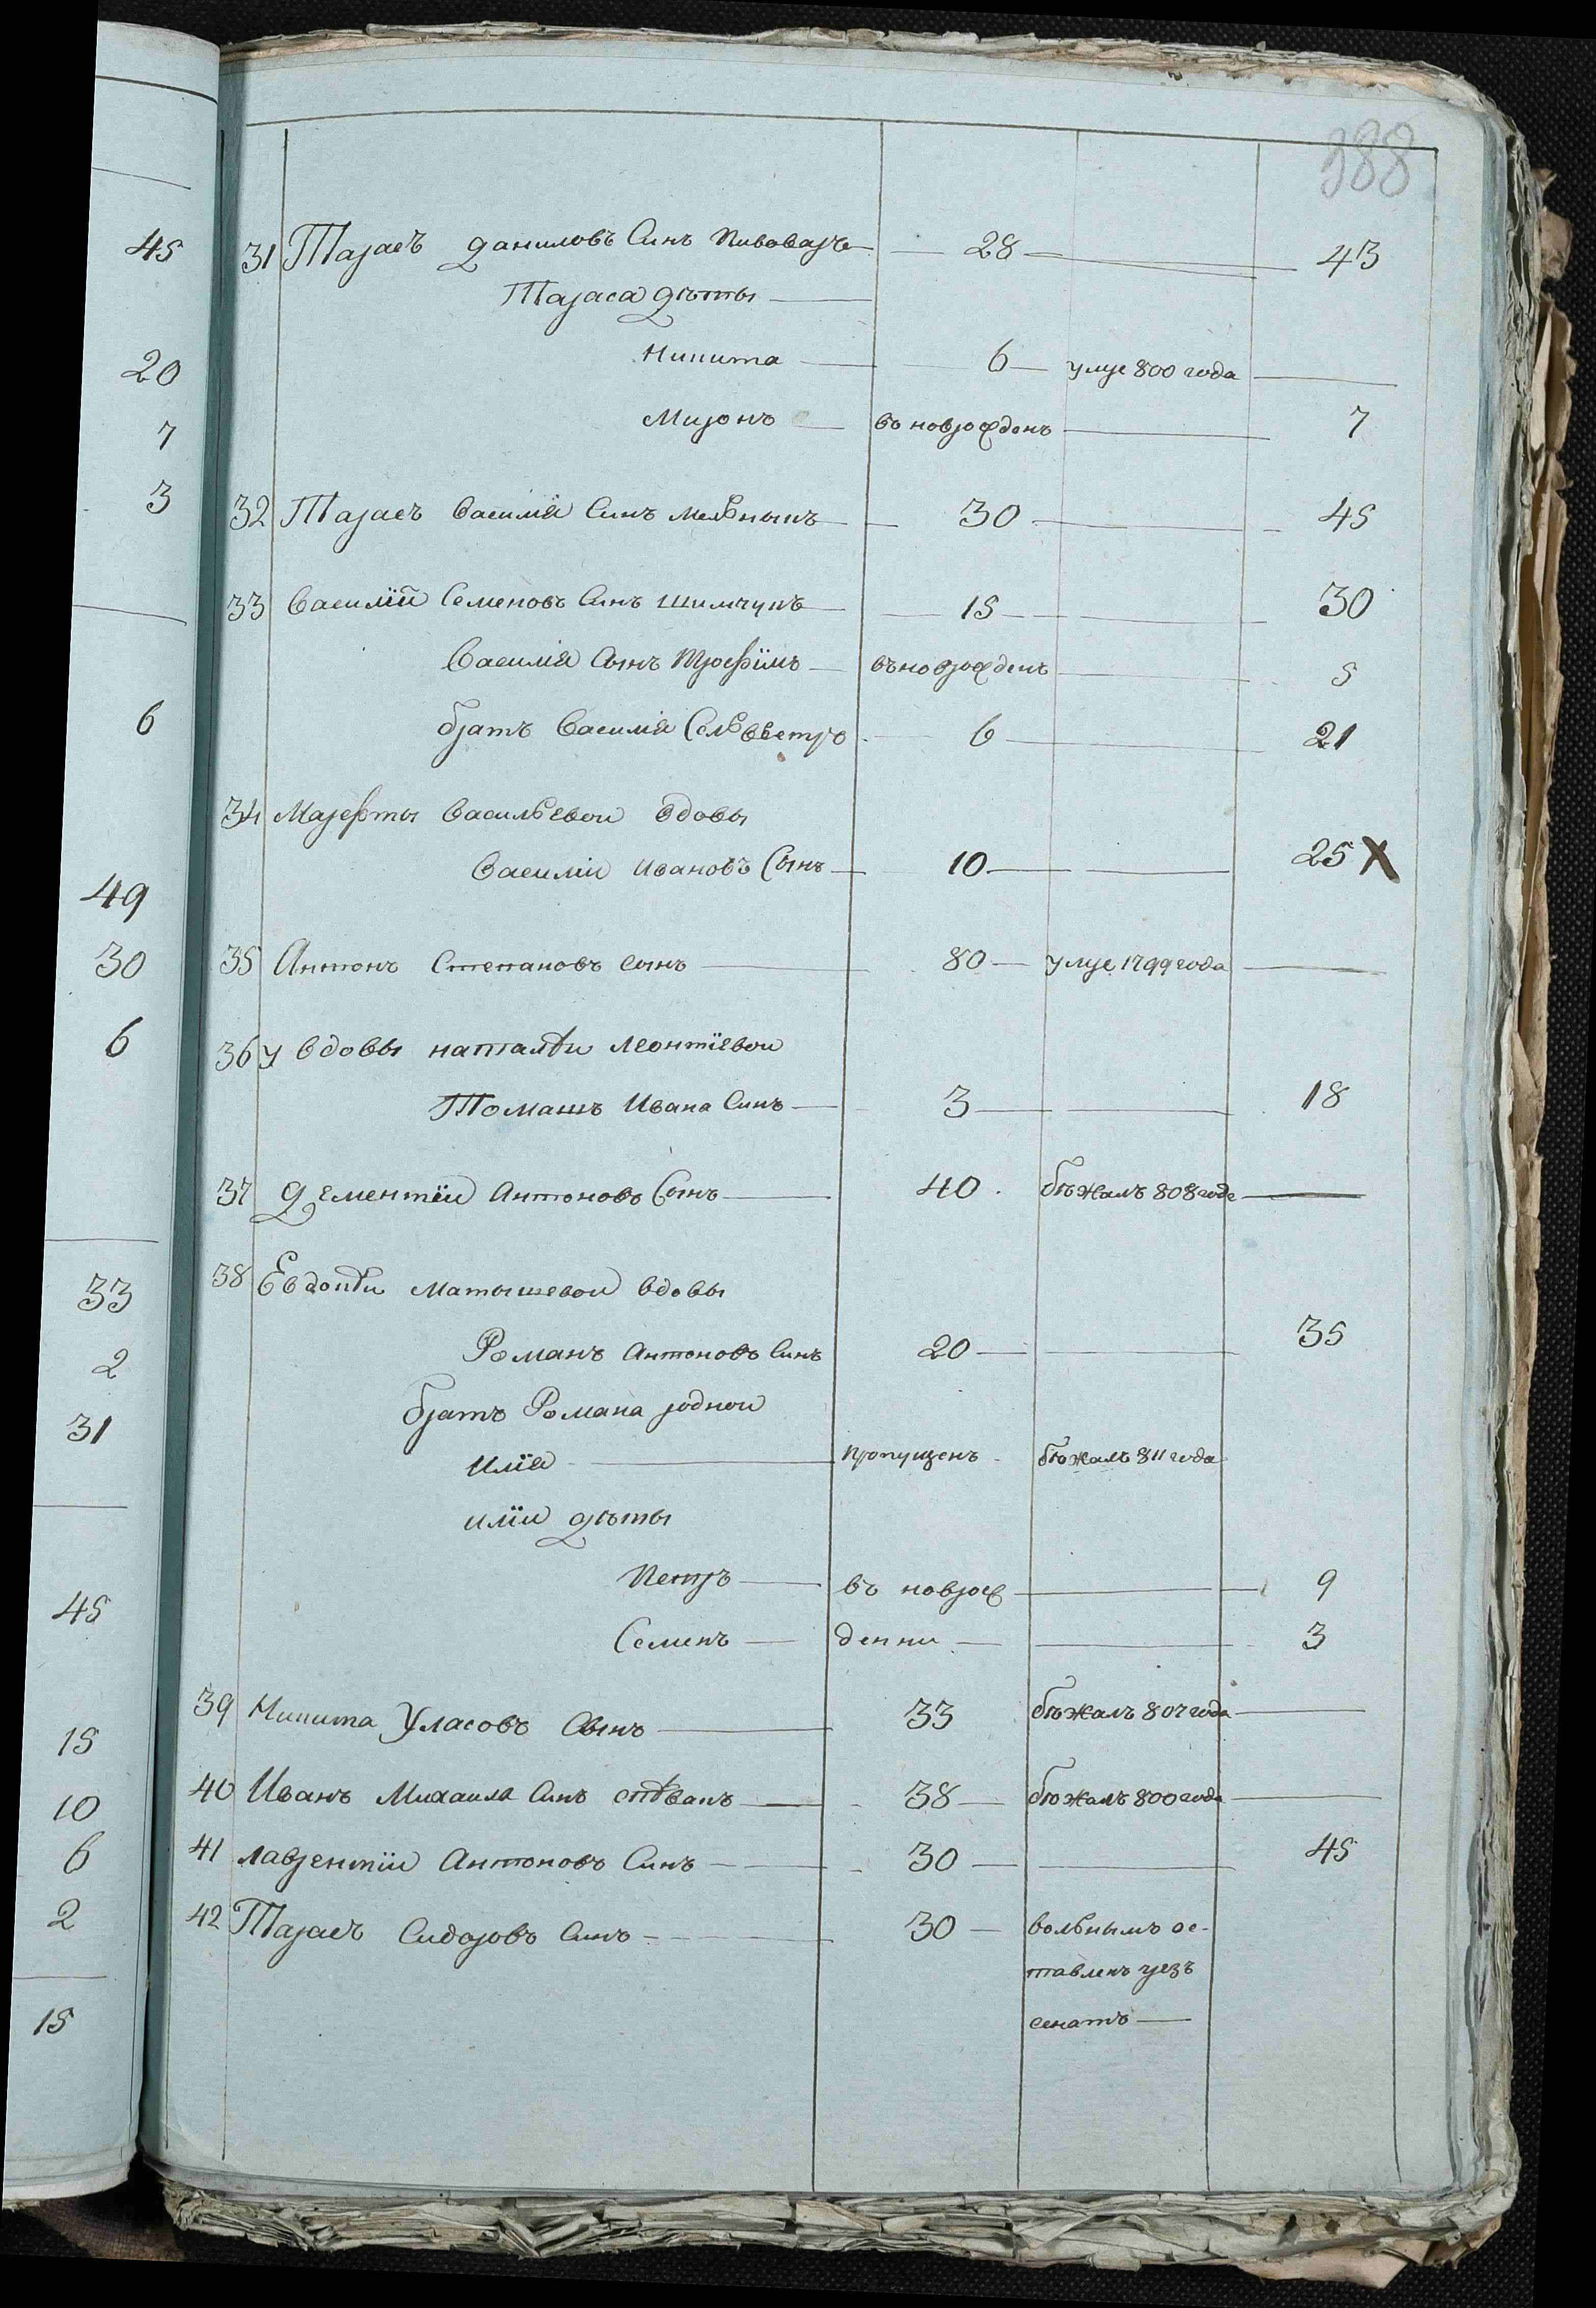 388
45
20
7
3
6
49
30
6
33
2
31
45
15
10
6
2
15
31 Тарасъ Даниловъ Синъ Пивоваръ 28 43
Тараса дѣты
Никита 6 умре 800 года
Миронъ въ новрожденъ 7
32 Тарасъ Василія Синъ мельныкъ 30 45
33 Василій Семеновъ Синъ Шимчукъ 15 30
Василія Сынъ Трофімъ въновρожденъ 5
братъ Василія Сельвестръ 6 21
34 Марефты Васильевои вдовы
Василіи Ивановъ Сынъ 10 25 X
35 Антонъ Степановъ сынъ 80 умре 1799 года
36 у вдовы наталѣи леонтіевои
Томашъ Ивана Синъ 3 18
37 Дементіи Антоновъ Сынъ 40 бѣжалъ 808 года
38 Евдокѣи матышевои вдовы
Романъ Антоновъ Синъ 20 35
братъ Романа роднои
илія пропущенъ бѣжалъ 811 года
иліи дѣты
Петръ въ новрож 9
Семенъ денни 3
39 Никита Уласовъ Сынъ 33 бѣжалъ 807 года
40 Иванъ Михаила Синъ 38 бѣжалъ 800 года
41 лаврентіи Антоновъ Синъ 30 45
42 Тарасъ Сидоровъ Синъ 30 вольнымъ ос-
тавленъ чрезъ
сенатъ